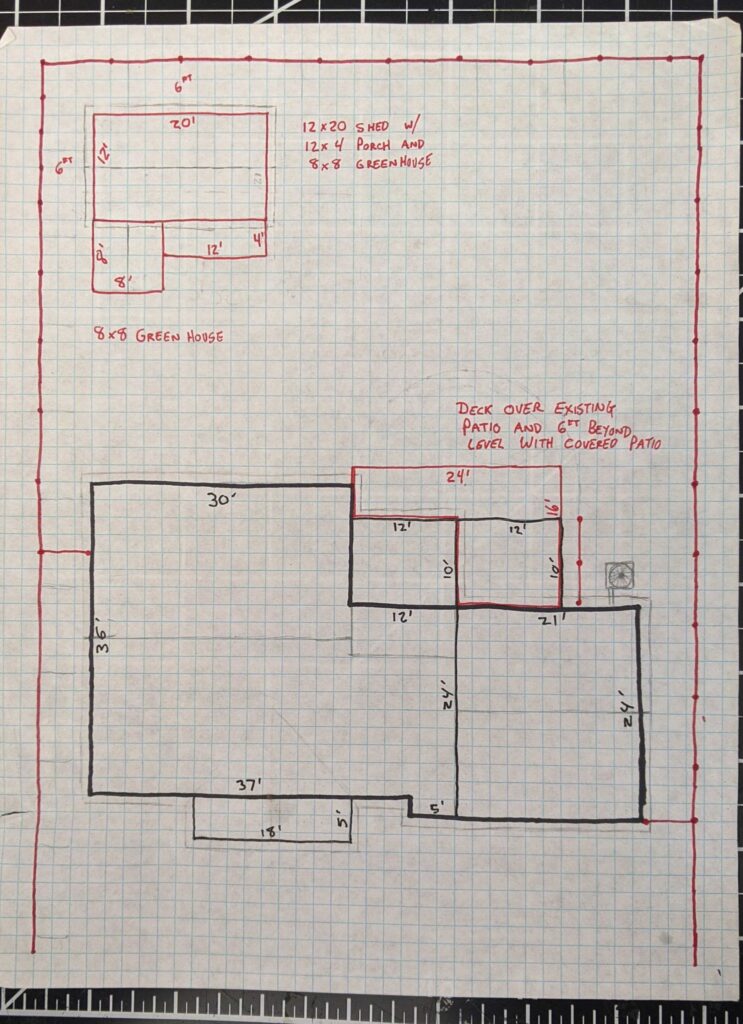 6 FT
20'
12'
6 FT
12'
12'
4'
8'
8'
12x20 SHED W/
12x4 PORCH AND
8x8 GREENHOUSE
8x8 GREEN HOUSE
DECK OVER EXISTING
PATIO AND 6FT BEYOND
LEVEL WITH COVERED PATIO
24'
16'
30'
12'
12'
10'
10'
12'
21'
36'
24'
24'
37'
5'
18'
5'